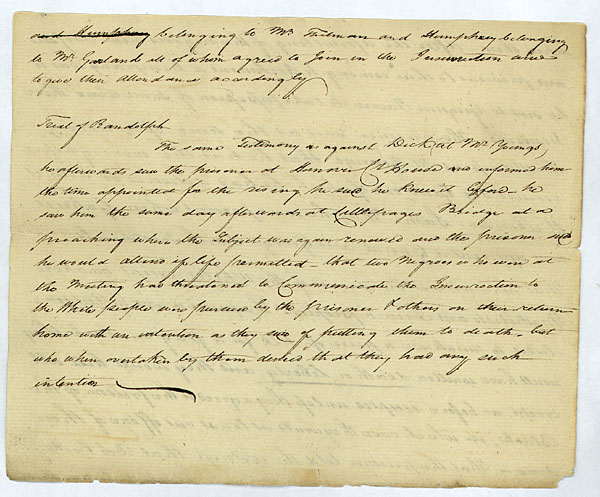 and Humphrey belonging to Mr Tinsman and Humphrey belonging
to Mr Garland all of whom agreed to Join in the Insurrection and
to give their attendance accordingly
Trial of Randolph
The same Testimony as against Dick (at Mr Youngs)
he afterwards saw the prisoner at Hanover Ct House and informed him
the time appointed for the rising, he said he knew it before he
saw him the same day afterwards at Littlepages Bridge at a
preaching where the Subject was again renewed and the prisoner said
he would attend if life permitted – that two Negroes who were at
the Meeting had threatened to Communicate the Insurrection to
the White people were pursued by the prisoner & others on their return
home with an intention as they said of putting them to death, but
who when overtaken by them denied that they had any such
intention